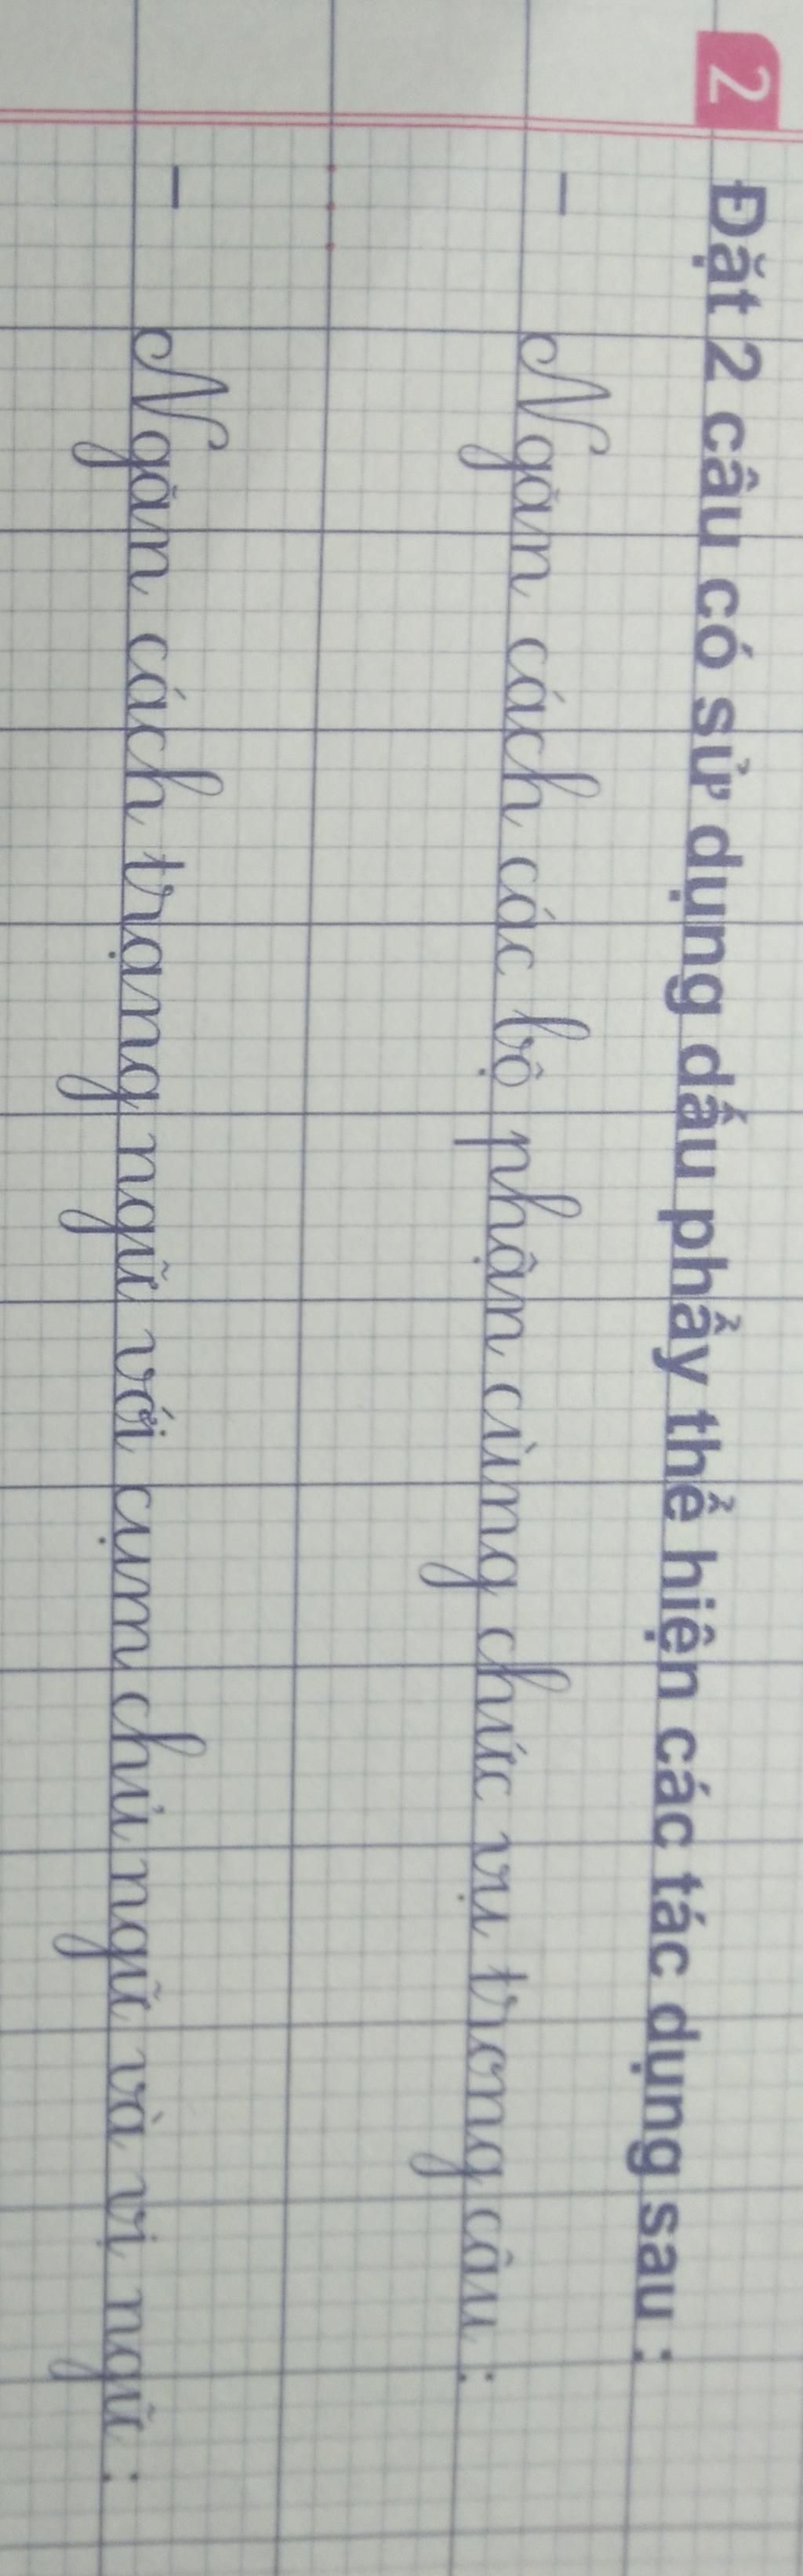 2 Đặt 2 câu có sử dụng dấu phẩy thể hiện các tác dụng sau :
- Ngăn cách các bộ phận cùng chức vụ trong câu :
...
- Ngăn cách trạng ngữ với cụm chủ ngữ và vị ngữ :